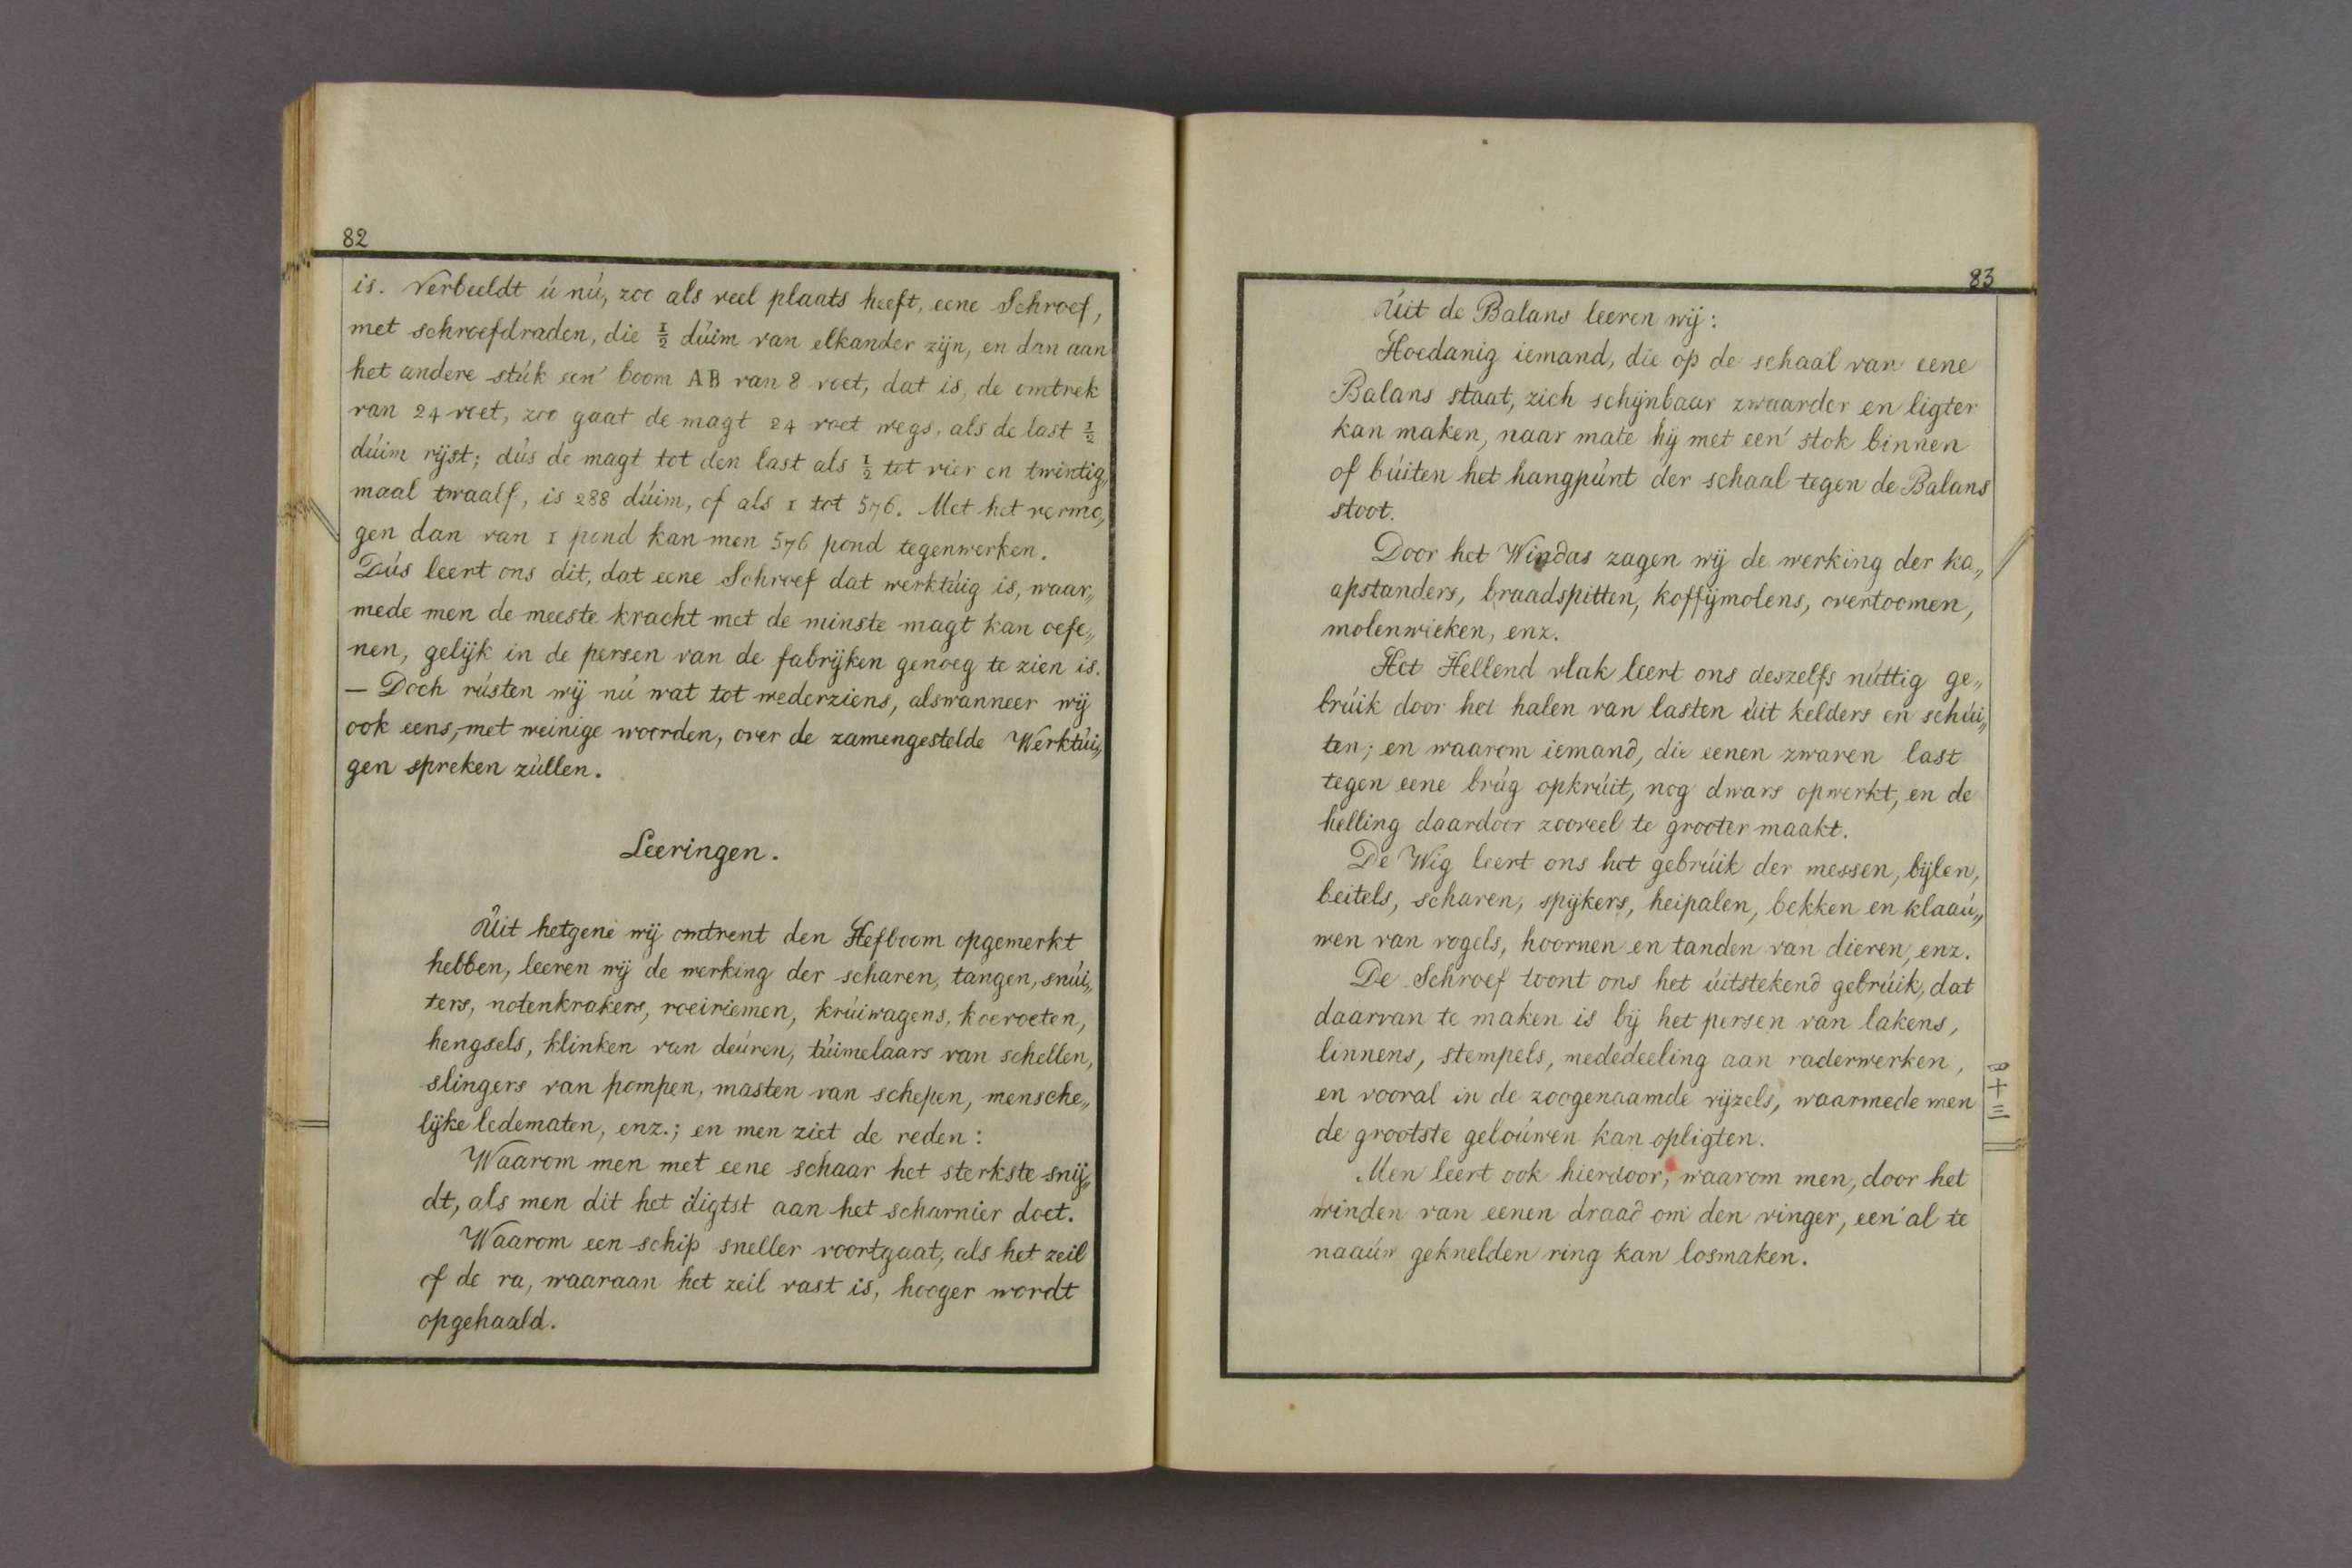 82
is. Verbeeldt ú nú, zoo als veel plaats heeft, eene Schroef,
met schroefdraden, die ½ dúim van elkander zijn, en dan aan
het andere stúk een' boom AB van 8 voet, dat is, de omtrek
van 24 voet, zoo gaat de magt 24 voet wegs, als de last ½
dúim rijst; dús de magt tot den last als ½ tot vier en twintig,,
maal twaalf, is 288 dúim, of als 1 tot 576. Met het vermo,,
gen dan van 1 pond kan men 576 pond tegenwerken.
Dús leert ons dit, dat eene Schroef dat werktúig is, waar,,
mede men de meeste kracht met de minste magt kan oefe,,
nen, gelijk in de persen van de fabrijken genoeg te zien is.
— Doch rústen wij nú wat tot wederziens, alswanneer wij
ook eens, met weinige woorden, over de zamengestelde Werktúi,,
gen spreken zúllen.
Leeringen.
Úit hetgene wij omtrent den Hefboom opgemerkt
hebben, leeren wij de werking der scharen, tangen, snúi,,
ters, notenkrakers, roeiriemen, krúiwagens, koevoeten,
hengsels, klinken van deúren, túimelaars van schellen,
slingers van pompen, masten van schepen, mensche,,
lijke ledematen, enz.; en men ziet de reden:
Waarom men met eene schaar het sterkste snij,,
dt, als men dit het digtst aan het scharnier doet.
Waarom een schip sneller voortgaat, als het zeil
of de ra, waaraan het zeil vast is, hooger wordt
opgehaald.
83
Úit de Balans leeren wij:
Hoedanig iemand, die op de schaal van eene
Balans staat, zich schijnbaar zwaarder en ligter
kan maken, naar mate hij met een' stok binnen
of búiten het hangpúnt der schaal tegen de Balans
stoot.
Door het Windas zagen wij de werking der ka,,
apstanders, braadspitten, koffijmolens, overtoomen,
molenwieken, enz.
Het Hellend vlak leert ons deszelfs núttig ge,,
brúik door het halen van lasten úit kelders en schúi,,
ten; en waarom iemand, die eenen zwaren last
tegen eene brúg opkrúit, nog dwars opwerkt, en de
helling daardoor zooveel te grooter maakt.
De Wig leert ons het gebrúik der messen, bijlen,
beitels, scharen, spijkers, heipalen, bekken en klaaú,,
wen van vogels, hoornen en tanden van dieren, enz.
De Schroef toont ons het úitstekend gebrúik, dat
daarvan te maken is bij het persen van lakens,
linnens, stempels, mededeeling aan raderwerken,
en vooral in de zoogenaamde vijzels, waarmede men
de grootste geloúwen kan opligten.
Men leert ook hierdoor, waarom men, door het
winden van eenen draad om den vinger, een' al te
naaúw geknelden ring kan losmaken.
四十三